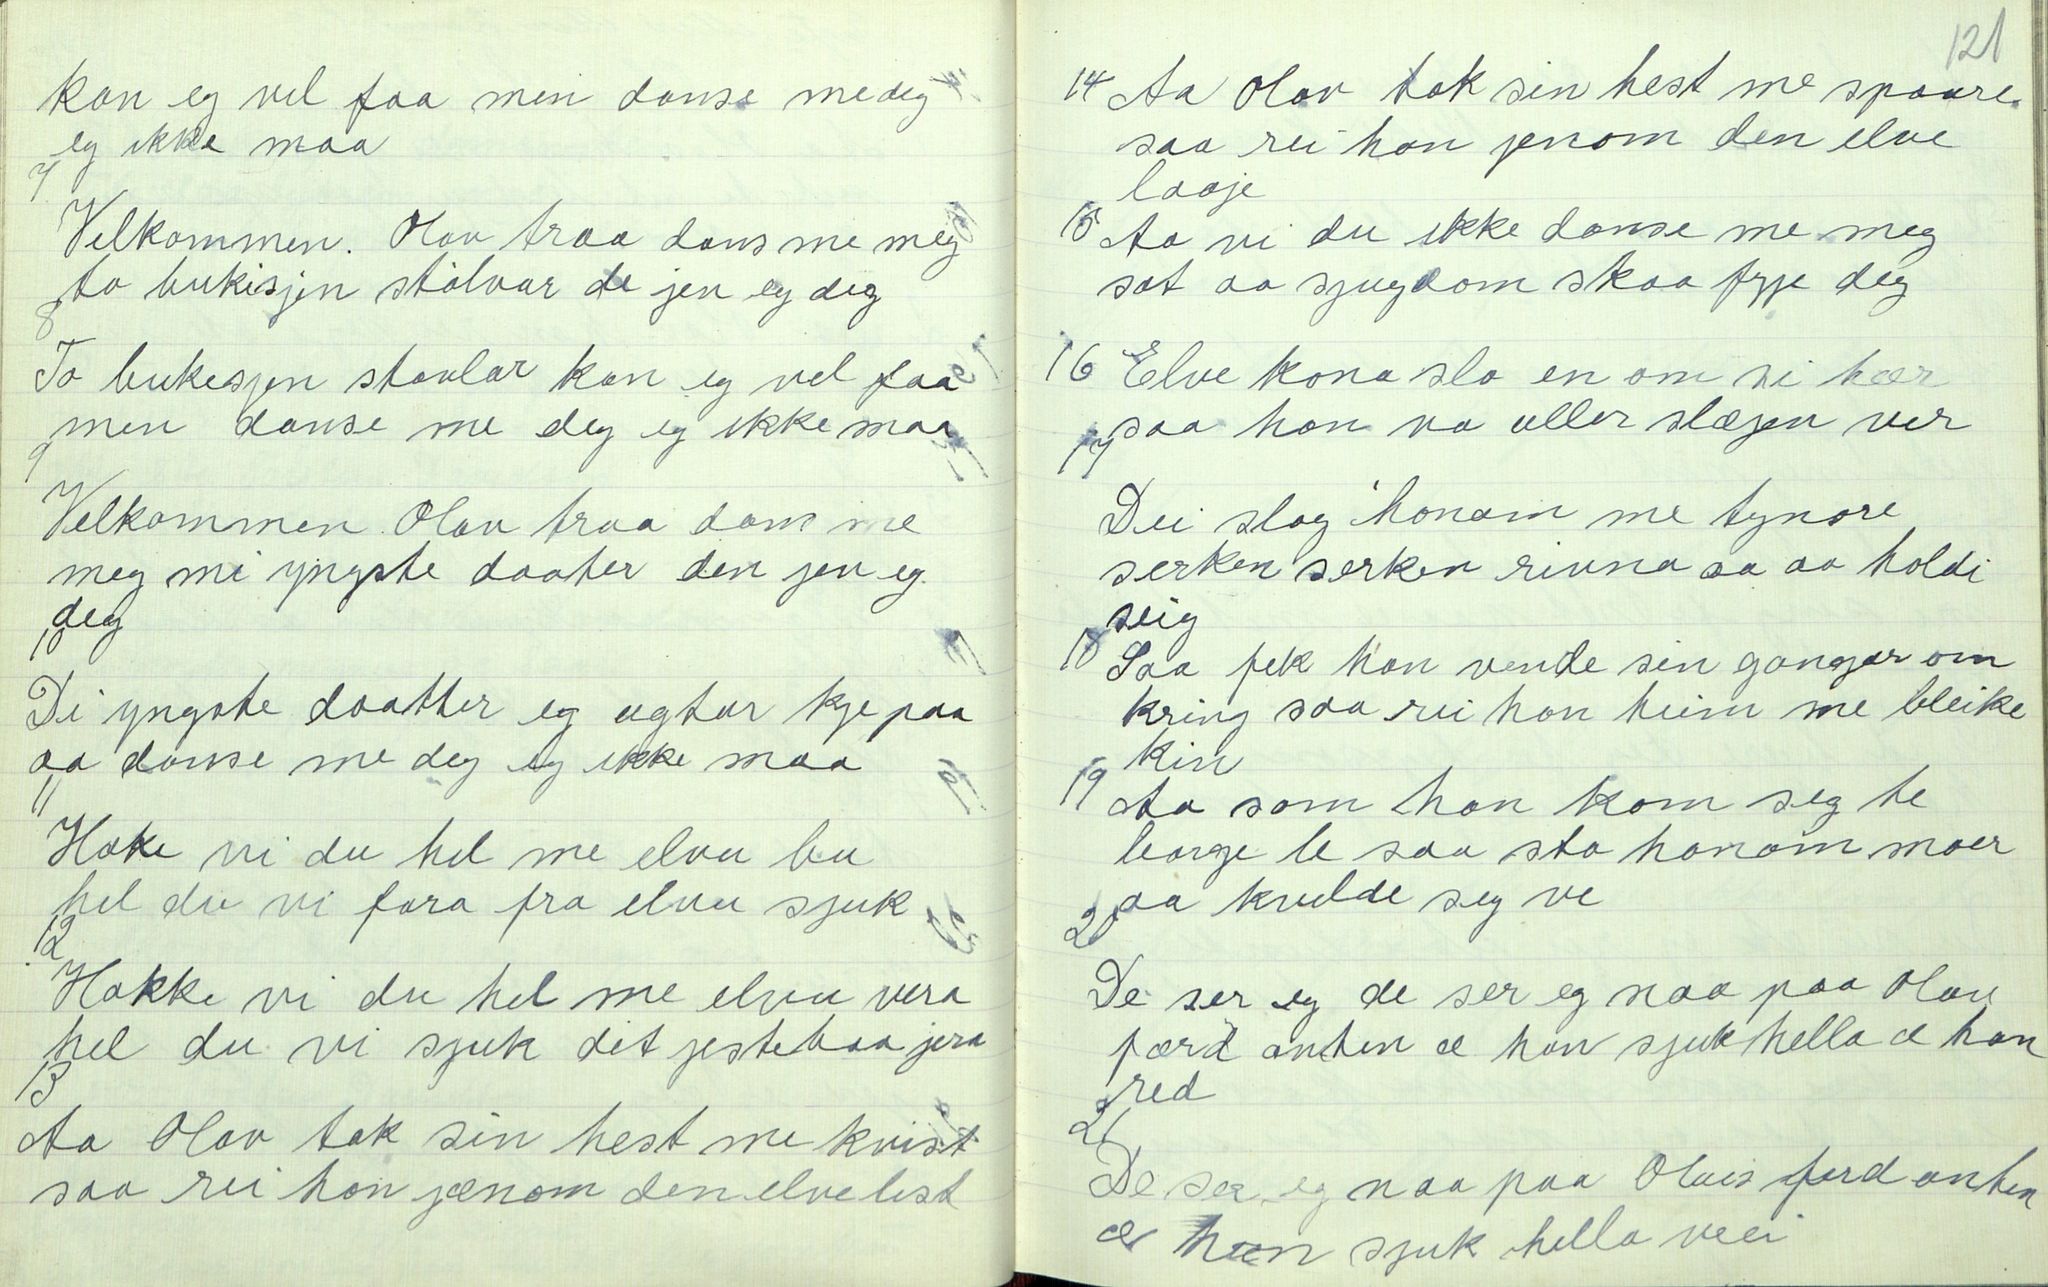 kan eg vel faa men danse medeg
eg ikke maa
7
Velkommen. Olav traa dans me meg
to bukisjen stålvar de jev eg deg
8
To bukesjen stavlar kan eg vel faa
men danse me deg eg ikke maa
9
Velkommen Olav traa dans me
meg mi yngste daater den jev eg
deg
10
Di yngste daatter eg agtar kje paa
aa danse me deg eg ikke maa
11
Hake vi du hel me elvu bu
hel du vi fara fra elvu sjuk
12
Hakke vi du hel me elvu vera
hel du vi sjuk dit jestebaa jera
13
Aa Olav tok sin hest me kvist
saa rei han jænom den elvelist
121
14 Aa Olav tok sin hest me spaare
saa rei han jenom den elve
laaje
15 Aa vi du ikke danse me meg
sot aa sjugdom skaa fyje deg
16 Elve kona slo en om si hær
saa han va aller slæjen ver
17
Dei slog honom me tynare
serken serken rivna sa aa holdi
seig
18 Saa fek han vende sin gangar om
kring saa rei han heim me bleike
kin
19 Aa som han kom seg te
borge le saa sto honom moer
aa kvelde seg ve
20
De ser eg de ser eg naa paa Olav
færd anten æ han sjuk hella æ han
red
21
De ser eg naa paa Olavs ferd anten
æ han sjuk hella veei